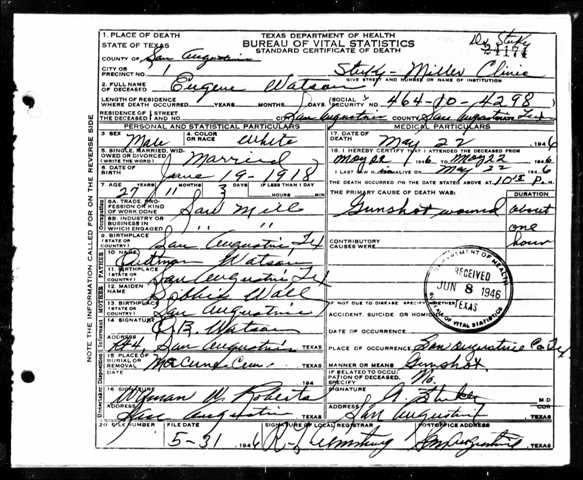 1. PLACE OF DEATH
TEXAS DEPARTMENT OF HEALTH
BUREAU OF VITAL STATISTICS
STANDARD CERTIFICATE OF DEATH
STATE OF TEXAS
COUNTY OF San Augustine
24174
CITY OR PRECINCT NO. 1
Miller Clinic
GIVE STREET AND NUMBER OR NAME OF INSTITUTION
2. FULL NAME OF DECEASED Eugene Watson
LENGTH OF RESIDENCE WHERE DEATH OCCURRED YEARS MONTHS DAYS
SOCIAL SECURITY NO. 464-10-4298
RESIDENCE OF THE DECEASED STREET AND NO. San Augustine COUNTY San Augustine Tex
PERSONAL AND STATISTICAL PARTICULARS
MEDICAL PARTICULARS
3. SEX Male 4. COLOR OR RACE White
17. DATE OF DEATH May 22 1946
5. SINGLE, MARRIED, WIDOWED OR DIVORCED Married
18. I HEREBY CERTIFY THAT I ATTENDED THE DECEASED FROM
May 22 1946 TO May 22 1946
6. DATE OF BIRTH June 19-1918
I LAST SAW HIM ALIVE ON May 22 1946
7. AGE 27 YEARS 11 MONTHS 3 DAYS IF LESS THAN 1 DAY
THE DEATH OCCURRED ON THE DATE STATED ABOVE AT P. M.
8A. TRADE, PROFESSION OR KIND OF WORK DONE Saw Mill
THE PRIMARY CAUSE OF DEATH WAS: DURATION
Gunshot wound about one hour
8B. INDUSTRY OR BUSINESS IN WHICH ENGAGED " "
CONTRIBUTORY CAUSES WERE:
9. BIRTHPLACE (STATE OR COUNTRY) San Augustine Tex
10. NAME Watson
11. BIRTHPLACE (STATE OR COUNTRY) San Augustine Tex
12. MAIDEN NAME Wall
13. BIRTHPLACE (STATE OR COUNTRY) San Augustine
DEPARTMENT OF HEALTH
RECEIVED
JUN 8 1946
TEXAS
BUREAU OF VITAL STATISTICS
IF NOT DUE TO DISEASE, SPECIFY
ACCIDENT, SUICIDE OR HOMICIDE
DATE OF OCCURRENCE
14. SIGNATURE Watson
ADDRESS Rt 4, San Augustine TEXAS
PLACE OF OCCURRENCE San Augustine Co Tex
15. PLACE OF BURIAL OR REMOVAL Cem. TEXAS
194
MANNER OR MEANS Gunshot
IF RELATED TO OCCUPATION OF DECEASED, SPECIFY No
16. SIGNATURE Wyman W. Roberts
ADDRESS San Augustine TEXAS
SIGNATURE M.D.
ADDRESS San Augustine TEXAS
20. FILE NUMBER FILE DATE 5-31 1946
SIGNATURE OF LOCAL REGISTRAR
POSTOFFICE ADDRESS San Augustine, TEXAS
NOTE THE INFORMATION CALLED FOR ON THE REVERSE SIDE
FATHER
MOTHER